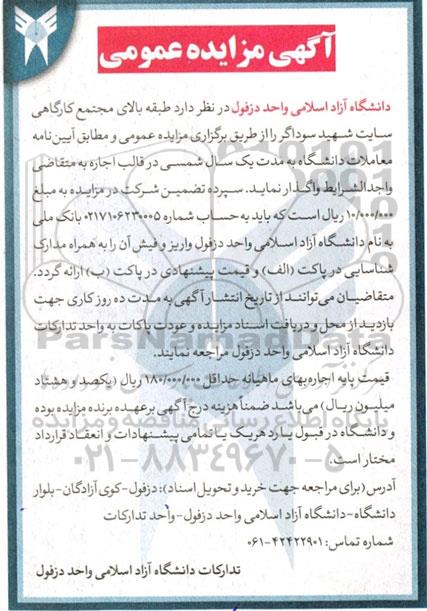 آگهی مزایده عمومی
دانشگاه آزاد اسلامی واحد دزفول در نظر دارد طبقه بالای مجتمع کارگاهی
سایت شهید سوداگر را از طریق برگزاری مزایده عمومی و مطابق آیین نامه
معاملات دانشگاه به مدت یک سال شمسی در قالب اجاره به متقاضی
واجدالشرایط واگذار نماید. سپرده تضمین شرکت در مزایده به مبلغ
۱۰/۰۰۰/۰۰۰ ریال است که باید به حساب شماره ۰۲۱۷۱۰۶۲۳۰۰۰۵ بانک ملی
به نام دانشگاه آزاد اسلامی واحد دزفول واریز و فیش آن را به همراه مدارک
شناسایی در پاکت (الف) و قیمت پیشنهادی در پاکت (ب) ارائه گردد.
متقاضیان می‌توانند از تاریخ انتشار آگهی به مدت ده روز کاری جهت
بازدید از محل و دریافت اسناد مزایده و عودت پاکات به واحد تدارکات
دانشگاه آزاد اسلامی واحد دزفول مراجعه نمایند.
قیمت پایه اجاره‌بهای ماهیانه حداقل ۱۸۰/۰۰۰/۰۰۰ ریال (یکصد و هشتاد
میلیون ریال) می‌باشد ضمناً هزینه درج آگهی برعهده برنده مزایده بوده
و دانشگاه در قبول یا رد هریک یا تمامی پیشنهادات و انعقاد قرارداد
مختار است.
آدرس (برای مراجعه جهت خرید و تحویل اسناد): دزفول-کوی آزادگان-بلوار
دانشگاه-دانشگاه آزاد اسلامی واحد دزفول-واحد تدارکات
شماره تماس: ۴۲۴۲۲۹۰۱-۰۶۱
تدارکات دانشگاه آزاد اسلامی واحد دزفول
ParsNamadData
پایگاه اطلاع رسانی مناقصه و مزایده
۰۲۱-۸۸۳۴۹۶۷۰-۵